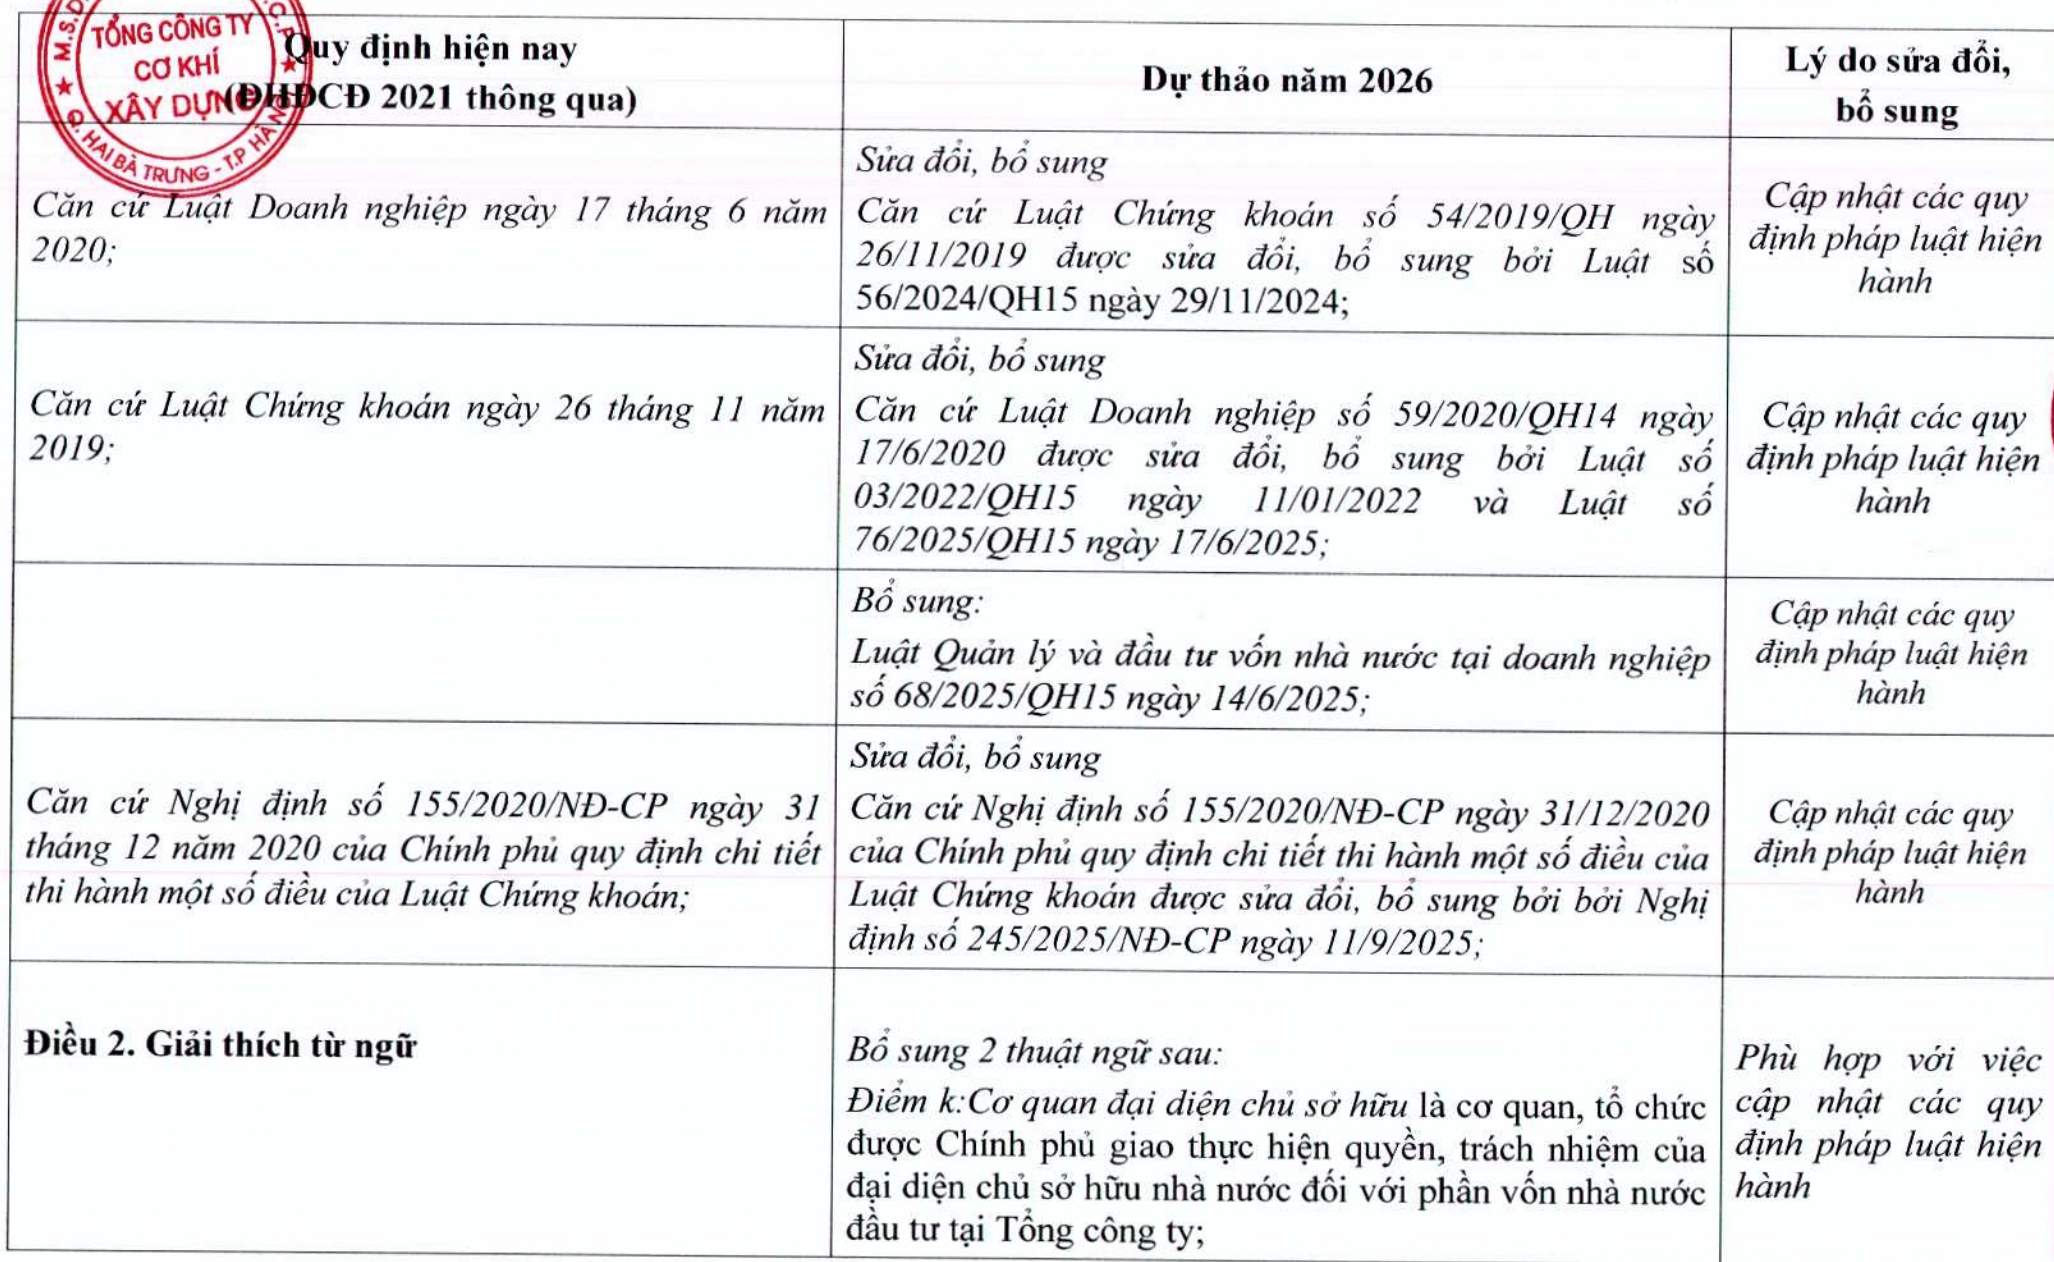 M.S.D
C.P
TỔNG CÔNG TY
CƠ KHÍ
XÂY DỰNG
Q. HAI BÀ TRƯNG - T.P HÀ NỘI
Quy định hiện nay
(ĐHĐCĐ 2021 thông qua)
Dự thảo năm 2026
Lý do sửa đổi,
bổ sung
Căn cứ Luật Doanh nghiệp ngày 17 tháng 6 năm
2020;
Sửa đổi, bổ sung
Căn cứ Luật Chứng khoán số 54/2019/QH ngày
26/11/2019 được sửa đổi, bổ sung bởi Luật số
56/2024/QH15 ngày 29/11/2024;
Cập nhật các quy
định pháp luật hiện
hành
Căn cứ Luật Chứng khoán ngày 26 tháng 11 năm
2019;
Sửa đổi, bổ sung
Căn cứ Luật Doanh nghiệp số 59/2020/QH14 ngày
17/6/2020 được sửa đổi, bổ sung bởi Luật số
03/2022/QH15 ngày 11/01/2022 và Luật số
76/2025/QH15 ngày 17/6/2025;
Cập nhật các quy
định pháp luật hiện
hành
Bổ sung:
Luật Quản lý và đầu tư vốn nhà nước tại doanh nghiệp
số 68/2025/QH15 ngày 14/6/2025;
Cập nhật các quy
định pháp luật hiện
hành
Căn cứ Nghị định số 155/2020/NĐ-CP ngày 31
tháng 12 năm 2020 của Chính phủ quy định chi tiết
thi hành một số điều của Luật Chứng khoán;
Sửa đổi, bổ sung
Căn cứ Nghị định số 155/2020/NĐ-CP ngày 31/12/2020
của Chính phủ quy định chi tiết thi hành một số điều của
Luật Chứng khoán được sửa đổi, bổ sung bởi bởi Nghị
định số 245/2025/NĐ-CP ngày 11/9/2025;
Cập nhật các quy
định pháp luật hiện
hành
Điều 2. Giải thích từ ngữ
Bổ sung 2 thuật ngữ sau:
Điểm k:Cơ quan đại diện chủ sở hữu là cơ quan, tổ chức
được Chính phủ giao thực hiện quyền, trách nhiệm của
đại diện chủ sở hữu nhà nước đối với phần vốn nhà nước
đầu tư tại Tổng công ty;
Phù hợp với việc
cập nhật các quy
định pháp luật hiện
hành